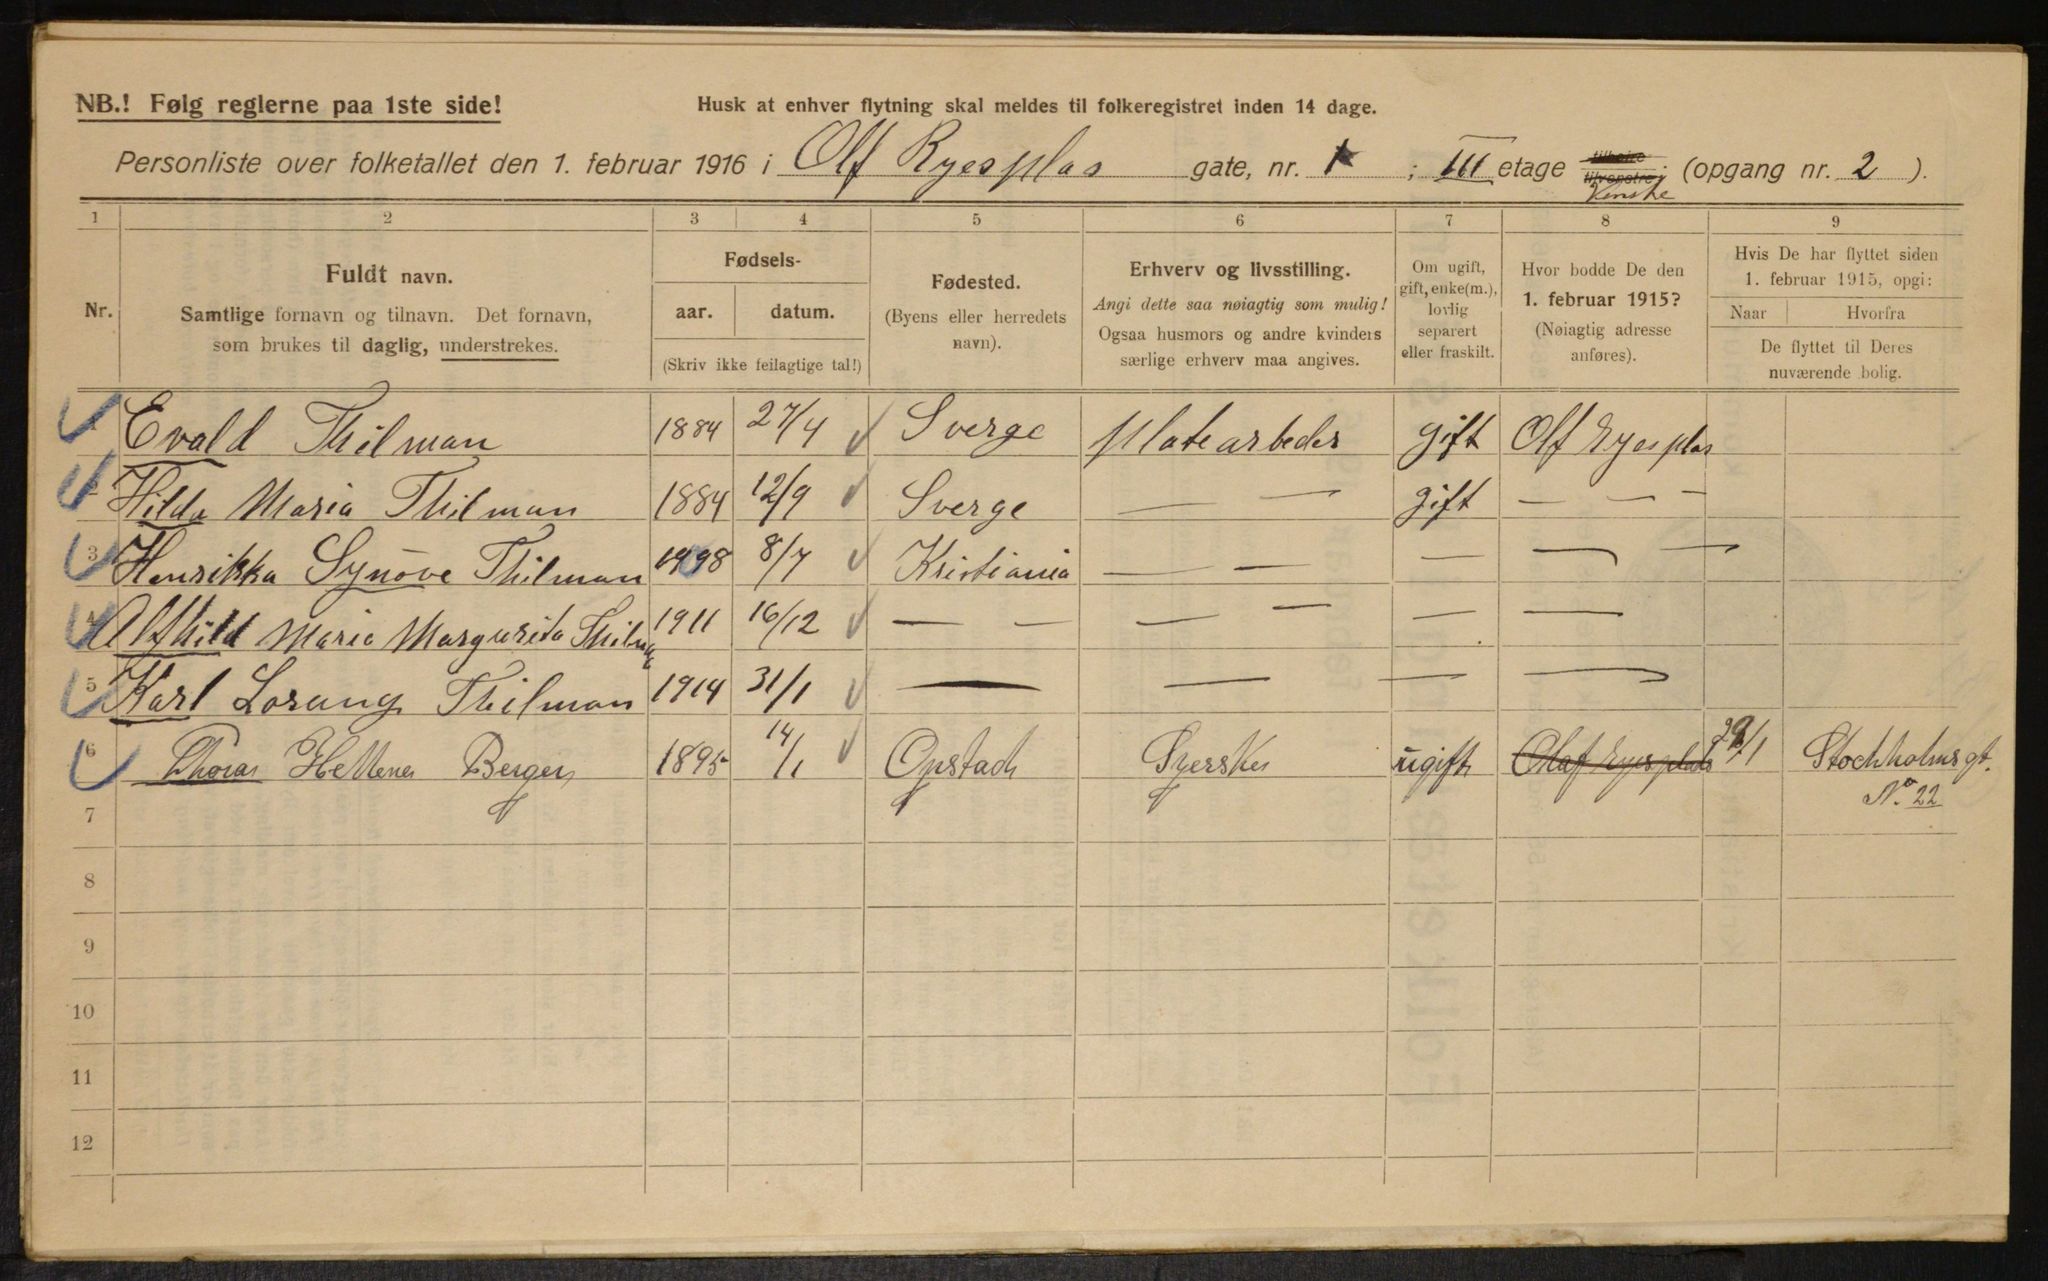 NB.! Følg reglerne paa 1ste side!
Husk at enhver flytning skal meldes til folkeregistret inden 14 dage.
Personliste over folketallet den 1. februar 1916 i Olf Ryesplas gate, nr. 1 ; III etage tilhøire tilvenstre Venstre (opgang nr. 2 ).
1 2 3 4 5 6 7 8 9
Nr.
Fuldt navn.
Samtlige fornavn og tilnavn. Det fornavn,
som brukes til daglig, understrekes.
Fødsels-
aar. datum.
(Skriv ikke feilagtige tal!)
Fødested.
(Byens eller herredets
navn).
Erhverv og livsstilling.
Angi dette saa nøiagtig som mulig!
Ogsaa husmors og andre kvinders
særlige erhverv maa angives.
Om ugift,
gift, enke(m.),
lovlig
separert
eller fraskilt.
Hvor bodde De den
1. februar 1915?
(Nøiagtig adresse
anføres).
Hvis De har flyttet siden
1. februar 1915, opgi:
Naar Hvorfra
De flyttet til Deres
nuværende bolig.
Evald Thilman 1884 27/4 Sverge platearbeder gift Olf Ryesplas
Hilda Maria Thilman 1884 12/9 Sverge — — gift — — —
3 Henrikka Synöve Thilman 8/7 Kristiania — — — — —
4 Alfhild Maria Margurita Thilman 1911 16/12 — — — — — —
5 Karl Lorang Thilman 1914 31/1 — — — —
6 Thora Berger 1895 14/1 Syerske ugift Olaf Ryesplads 29/1 Stockholmsgt.
No 22
7
8
9
10
11
12